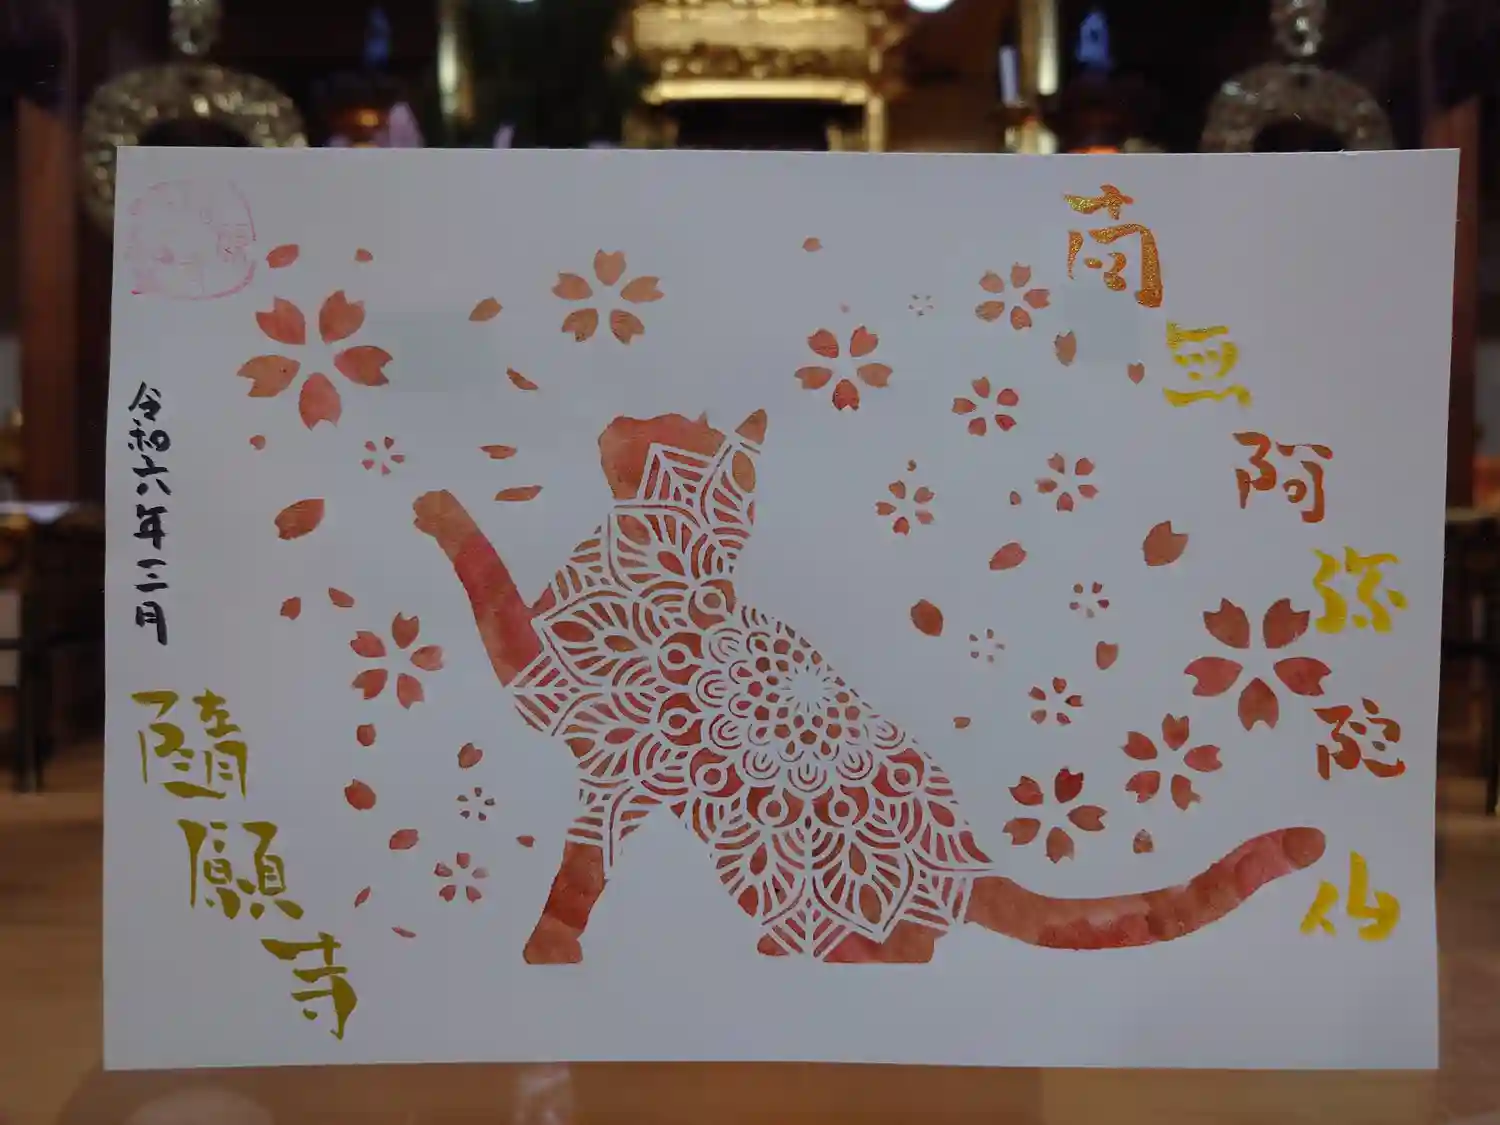 南無阿弥陀仏
令和六年三月
隨願寺